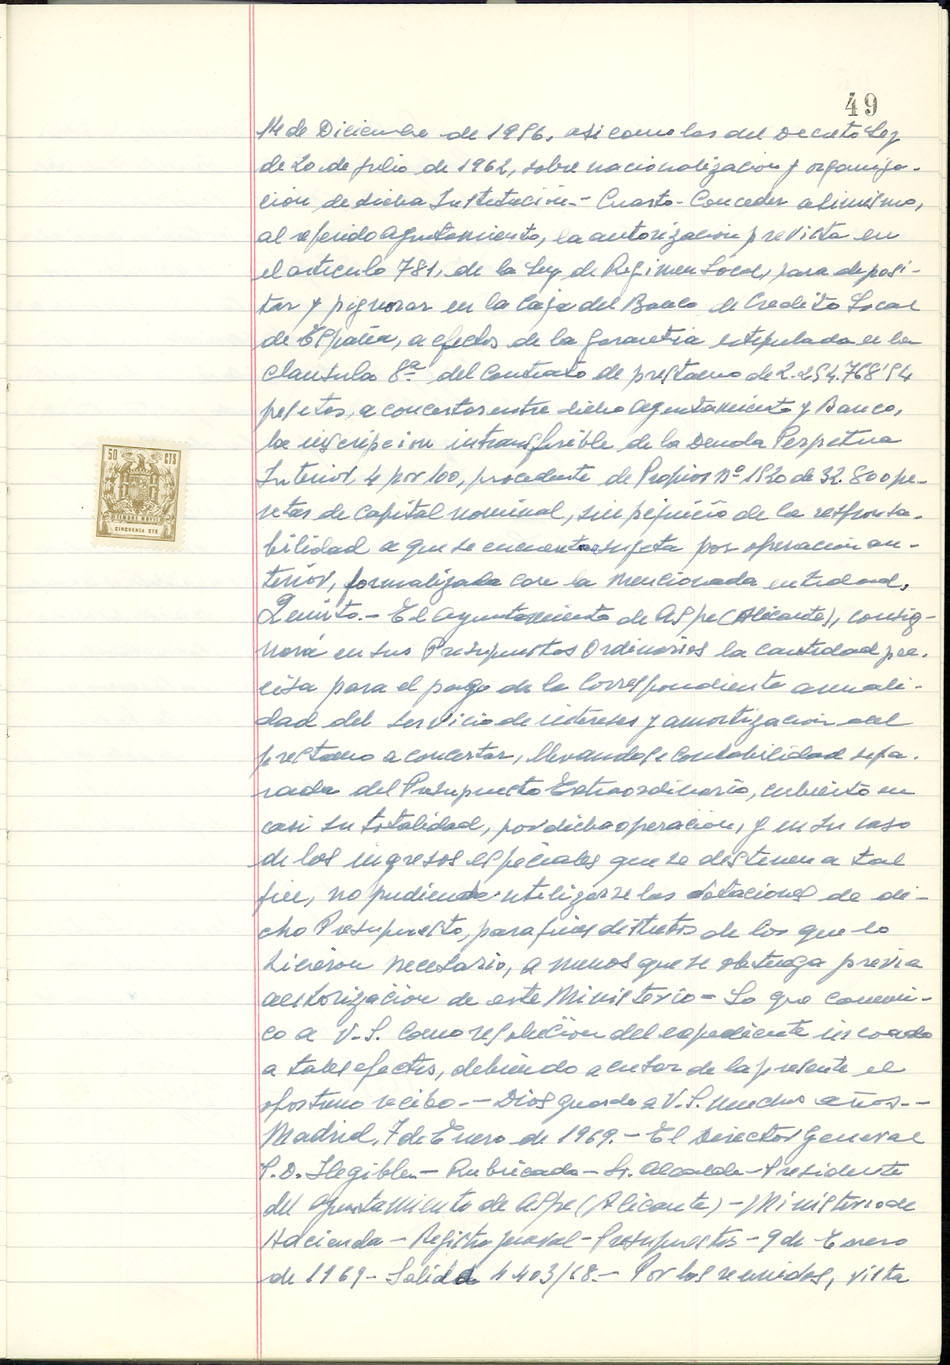 49
14 de Diciembre de 1956, asi como las del Decreto Ley
de 20 de Julio de 1962, sobre nacionalización y organiza-
cion de dicha Institución.- Cuarto- Conceder asimismo,
al referido Ayuntamiento, la autorizacion prevista en
el articulo 781, de la Ley de Regimen Local, para deposi-
tar y pignorar en la Caja del Banco de Credito Local
de España, a efectos de la garantia estipulada en la
Clausula 8ª del Contrato de prestamo de 2.254.768'54
pesetas, a concertar entre dicho Ayuntamiento y Banco,
la inscripcion intransferible de la Deuda Perpetua
Interior, 4 por 100, procedente de Propios nº 1520 de 32.800 pe-
setas de capital nominal, sin pejuicio de la responsa-
bilidad a que se encuentra sujeta por operacion an-
terior, formalizada con la mencionada entidad,
Quinto.- El Ayuntamiento de Aspe (Alicante), consig-
nará en sus Presupuestos Ordinarios la cantidad pre-
cisa para el pago de la correspondiente anuali-
dad del servicio de intereses y amortizacion del
prestamo a concertar, llevandose contabilidad sepa-
rada del Presupuesto Extraordinario, cubierto en
casi su totalidad, por dicha operacion, y en su caso
de los ingresos especiales que se destinen a tal
fin, no pudiendo utilizarse las dotaciones de di-
cho Presupuesto, para fines distintos de los que lo
hicieron necesario, a menos que se obtenga previa
autorización de este Ministerio = Lo que comuni-
co a V.S. como resolucion del expediente incoado
a tales efectos, debiendo acusar de la presente el
oportuno recibo.-- Dios guarde a V.S. muchos años.--
Madrid, 7 de Enero de 1969.- El Director General
P.D. Ilegible.- Rubricado- Sr. Alcalde-Presidente
del Ayuntamiento de Aspe (Alicante) - Ministerio de
Hacienda - Registro general - Presupuestos - 9 de Enero
de 1969- Salida 4403/68.- Por los reunidos, vista
50 CTS
TIMBRE MOVIL
CINCUENTA CTS